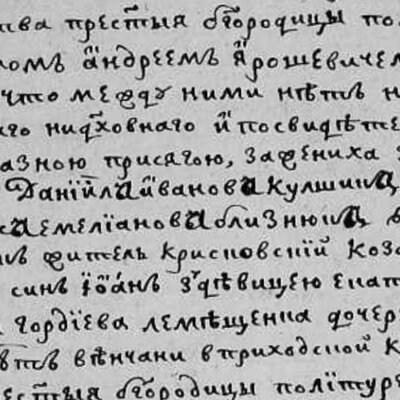 тва престыя бгородицы по
ломъ андреемъ ярошевичем
что между ними нѣтъ н
аго ни духовнаго и посвидѣте
азною присягою, за жениха
Даніила иванова кулшина
са емеліанова близнюца в
нъ житель крисповскій коза
синъ Іоанъ з дѣвицею екат
гордіева лемѣщенка дочер
вѣнчани в приходской к
естыя бгородицы политуре